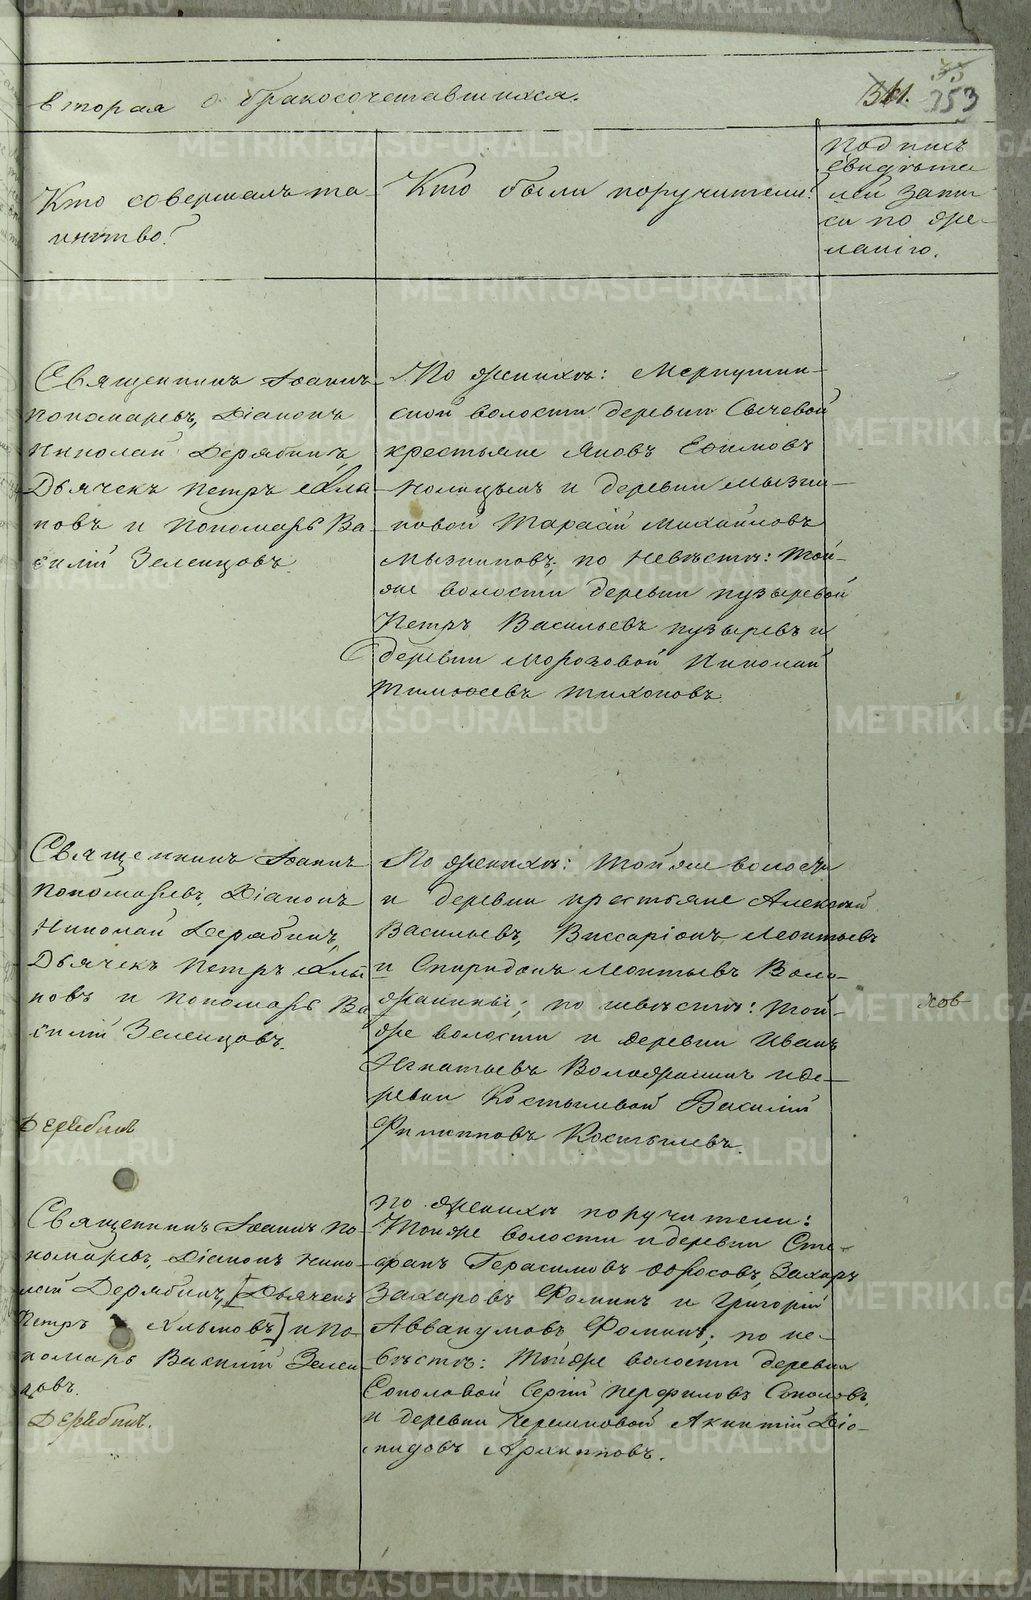 вторая о бракосочетавшихся.
353
Кто совершалъ та-
инство?
Кто были поручители?
Подпись
свидѣте
лей запи
си по же-
ланію.
Священникъ Іоаннъ
Пономаревъ, Діаконъ
Николай Дерябинъ,
Дьячекъ Петръ
ковъ и Пономарь Ва-
силій Зеленцовъ.
По женихѣ: Меркушин-
ской волости деревни Сычевой
крестьяне Яковъ Ефимовъ
и деревни Мызни-
ковой Тарасій Михайловъ
Мызниковъ; по невѣстѣ: Той-
же волости деревни Пузыревой
Петръ Васильевъ Пузыревъ и
деревни Морозовой Николай
Тимофеевъ Тихоновъ.
Священникъ Іоаннъ
Пономаревъ, Діаконъ
Николай Дерябинъ,
Дьячекъ Петръ
ковъ и Пономарь Ва-
силій Зеленцовъ.
Дерябинъ
По женихѣ: Той же волости
и деревни крестьяне Алексѣй
Васильевъ, Виссаріонъ Леонтьевъ
и Спиридонъ Леонтьевъ Воло-
жанины; по невѣстѣ: Той-
же волости и деревни Иванъ
Игнатьевъ Воложанинъ и де-
ревни Костылевой Василій
Филиповъ Костылевъ.
ков
Священникъ Іоаннъ По-
номаревъ, Діаконъ Нико-
лай Дерябинъ, [Дьячекъ
Петръ] и По-
номарь Василій Зелен-
цовъ.
Дерябинъ.
По женихѣ поручители:
Тойже волости и деревни Сте-
фанъ Герасимовъ Захаръ
Захаровъ Фоминъ и Григорій
Аввакумовъ Фоминъ; по не-
вѣстѣ: Тойже волости деревни
Соколовой Сергій Перфиловъ Соколовъ,
и деревни Черемновой Діо-
мидовъ